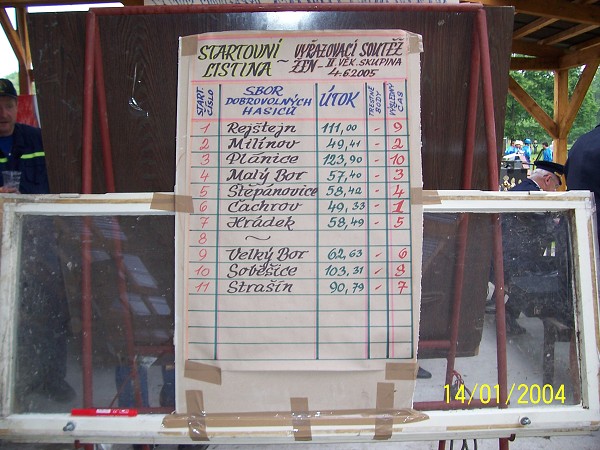 STARTOVNÍ LISTINA ~ VYŘAZOVACÍ SOUTĚŽ
ŽEN - II. VĚK. SKUPINA
4.6.2005
START. ČÍSLO SBOR DOBROVOLNÝCH HASIČŮ ÚTOK TRESTNÉ BODY VÝSLEDNÝ ČAS
1 Rejštejn 111,00 - 9
2 Milínov 49,41 - 2
3 Plánice 123,90 - 10
4 Malý Bor 57,40 - 3
5 Štěpánovice 58,42 - 4
6 Čachrov 49,33 - 1
7 Hrádek 58,49 - 5
8 ~
9 Velký Bor 62,63 - 6
10 Soběšice 103,31 - 8
11 Strašín 90,79 - 7
14/01/2004